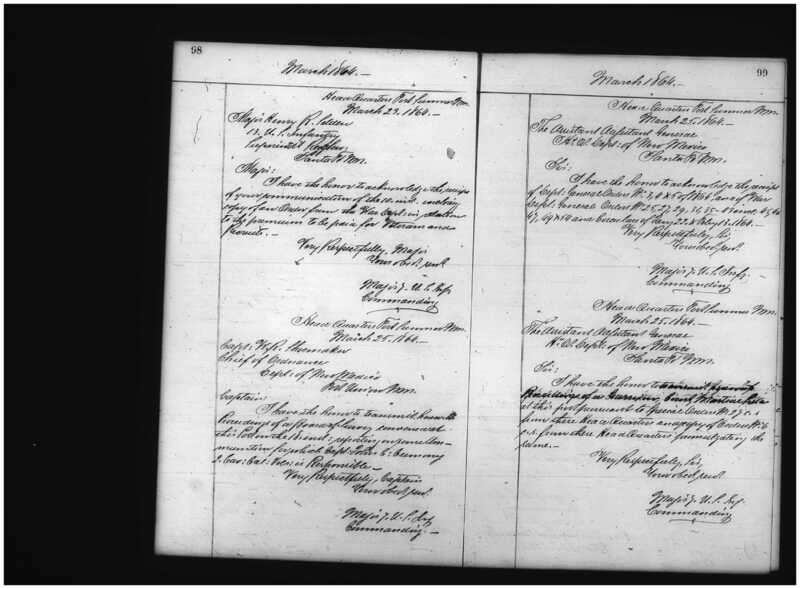 98
March 1864.—
Head Quarters Fort Sumner N.M.
March 23. 1864.—
Major Henry R. Selden
13. U.S. Infantry
Santa Fé N.M.
Major:
I have the honor to acknowledge the receipt
of your communication of the inst: enclosing
copy of an Order from the War Dept: in relation
to the premium to be paid for Veteran and
Recruits.—
Very Respectfully, Major
Your obed. servt.
Major 7. U.S. Inf.
Commanding
Head Quarters Fort Sumner N.M.
March 25. 1864.—
Capt: W.R. Shoemaker
Chief of Ordnance
Dept: of New Mexico
Fort Union N.M.
Captain:
I have the honor to transmit herewith
Proceedings of a Board of Survey convened at
this Post on the inst: reporting on some
for which Capt:
Cav: Cal: Vols: is Responsible—
Very Respectfully, Captain
Your obed. servt.
Major 7. U.S. Inf.
Commanding.—
99
March 1864.—
Head Quarters Fort Sumner N.M.
March 25. 1864.—
The Assistant Adjutant General
Hd. Qrs. Dept: of New Mexico
Santa Fé N.M.
Sir:
I have the honor to acknowledge the receipt
of Dept: General Orders No. and of War
Dept: General Orders
and Circulars of
Very Respectfully, Sir
Your obed. servt.
Major 7. U.S. Inf.
Commanding
Head Quarters Fort Sumner N.M.
March 25. 1864.—
The Assistant Adjutant General
Hd. Qrs. Dept: of New Mexico
Santa Fé N.M.
Sir:
I have the honor to transmit herewith
Proceedings of a Garrison Court Martial held
at this post pursuant to Special Orders No. 27 c.s.
from these Head Quarters and copy of Orders No. 6
c.s. from these Head Quarters promulgating the
same.—
Very Respectfully, Sir
Your obed. servt.
Major 7. U.S. Inf.
Commanding